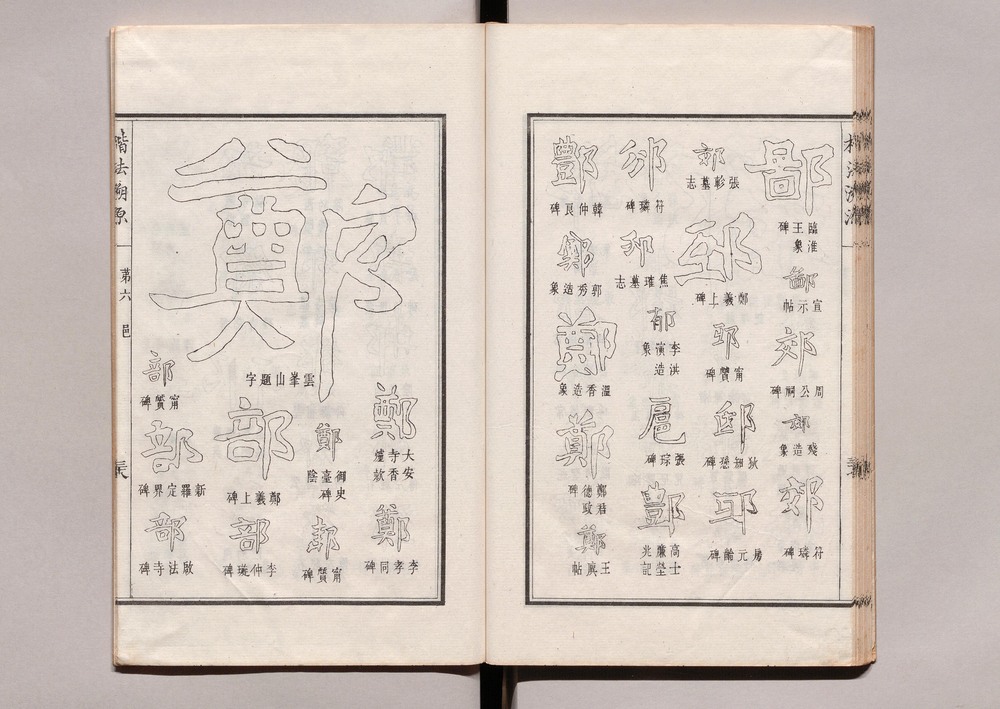 鄙
臨淮王象碑
鄙
宣示帖
郊
周公祠碑
郊
殘造象
郊
符璘碑
郊
張軫墓志
鄭羲上碑
甯贙碑
邸
狄知愻碑
房元齡碑
邠
符璘碑
邠
焦璀墓志
郁
李洪演造象
扈
張琮碑
酆
高士廉塋兆記
酆
韓仲良碑
鄭
郭秀造象
鄭
溫香造象
鄭
鄭君德政碑
鄭
王廙帖
鄭
大安寺香爐款
鄭
李孝同碑
鄭
雲峯山題字
鄭
御史臺碑陰
甯贙碑
部
鄭羲上碑
部
李仲璇碑
部
甯贙碑
部
新羅定界碑
部
啟法寺碑
楷法溯原
第六 邑